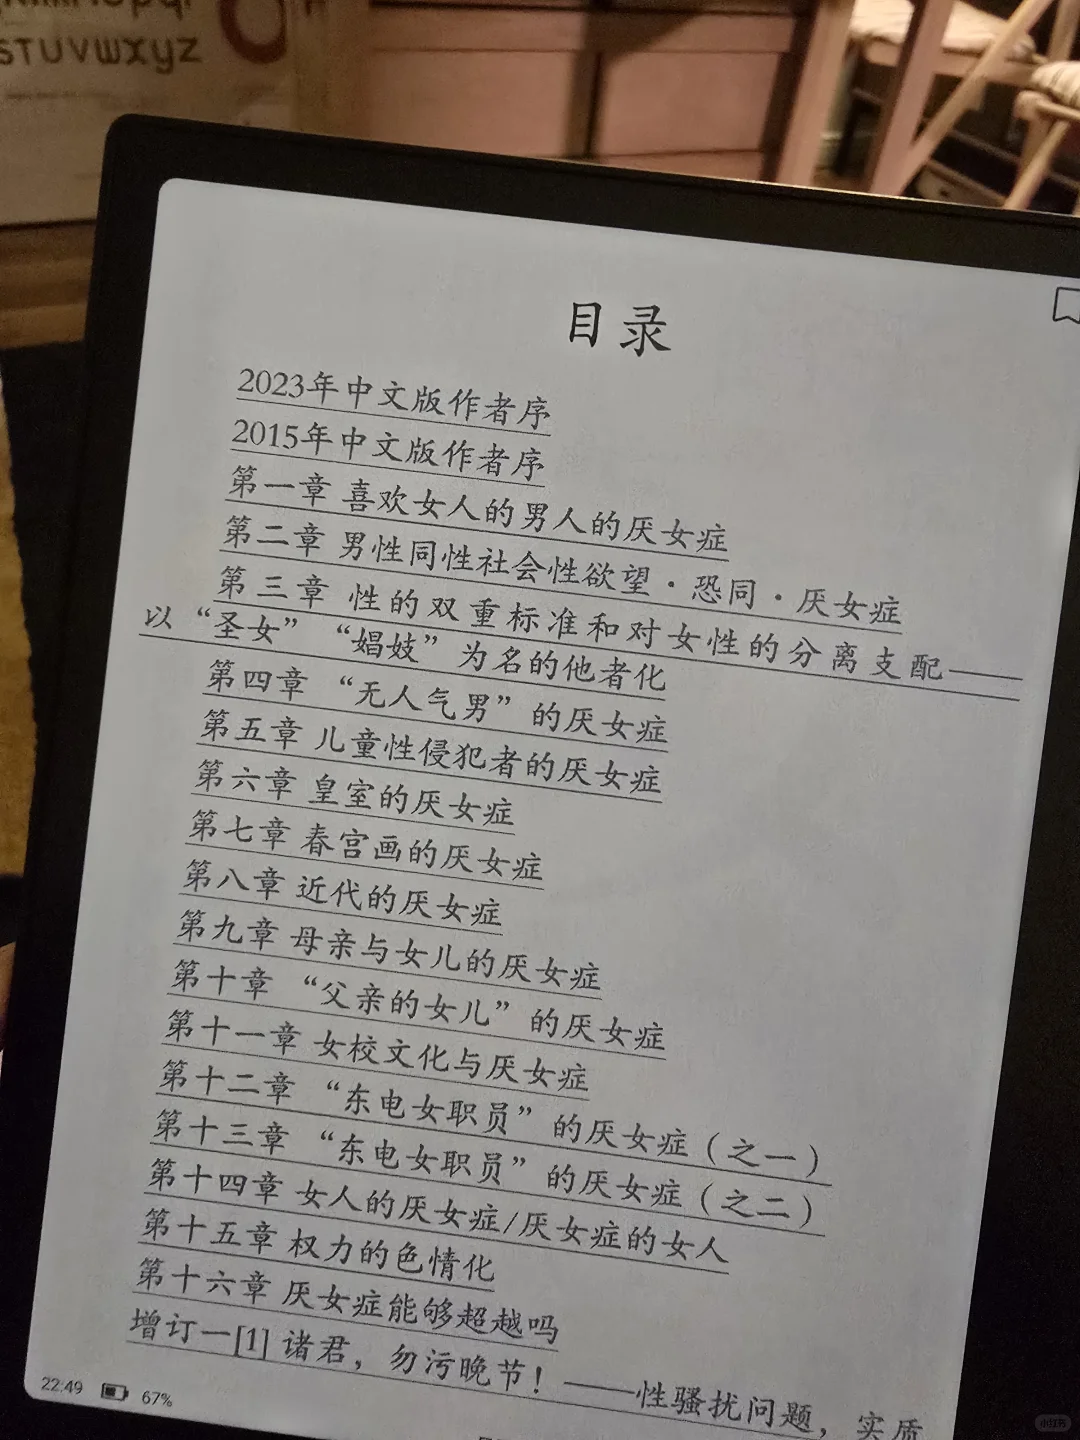 STUVWXYZ
目录
2023年中文版作者序
2015年中文版作者序
第一章 喜欢女人的男人的厌女症
第二章 男性同性社会性欲望·恐同·厌女症
第三章 性的双重标准和对女性的分离支配——
以“圣女”“娼妓”为名的他者化
第四章 “无人气男”的厌女症
第五章 儿童性侵犯者的厌女症
第六章 皇室的厌女症
第七章 春宫画的厌女症
第八章 近代的厌女症
第九章 母亲与女儿的厌女症
第十章 “父亲的女儿”的厌女症
第十一章 女校文化与厌女症
第十二章 “东电女职员”的厌女症（之一）
第十三章 “东电女职员”的厌女症（之二）
第十四章 女人的厌女症/厌女症的女人
第十五章 权力的色情化
第十六章 厌女症能够超越吗
增订一[1] 诸君，勿污晚节！——性骚扰问题，实质
22:49 67%
小红书